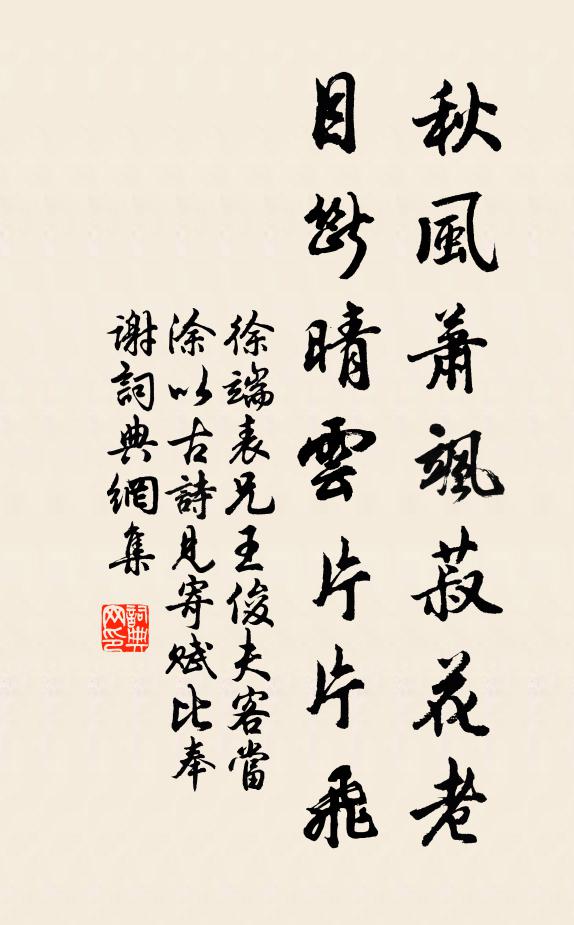 秋風蕭颯菽花老
目斷晴雲片片飛
徐端表兄王俊夫客當
涂以古詩見寄賦比奉
謝詞典網集
詞典网印